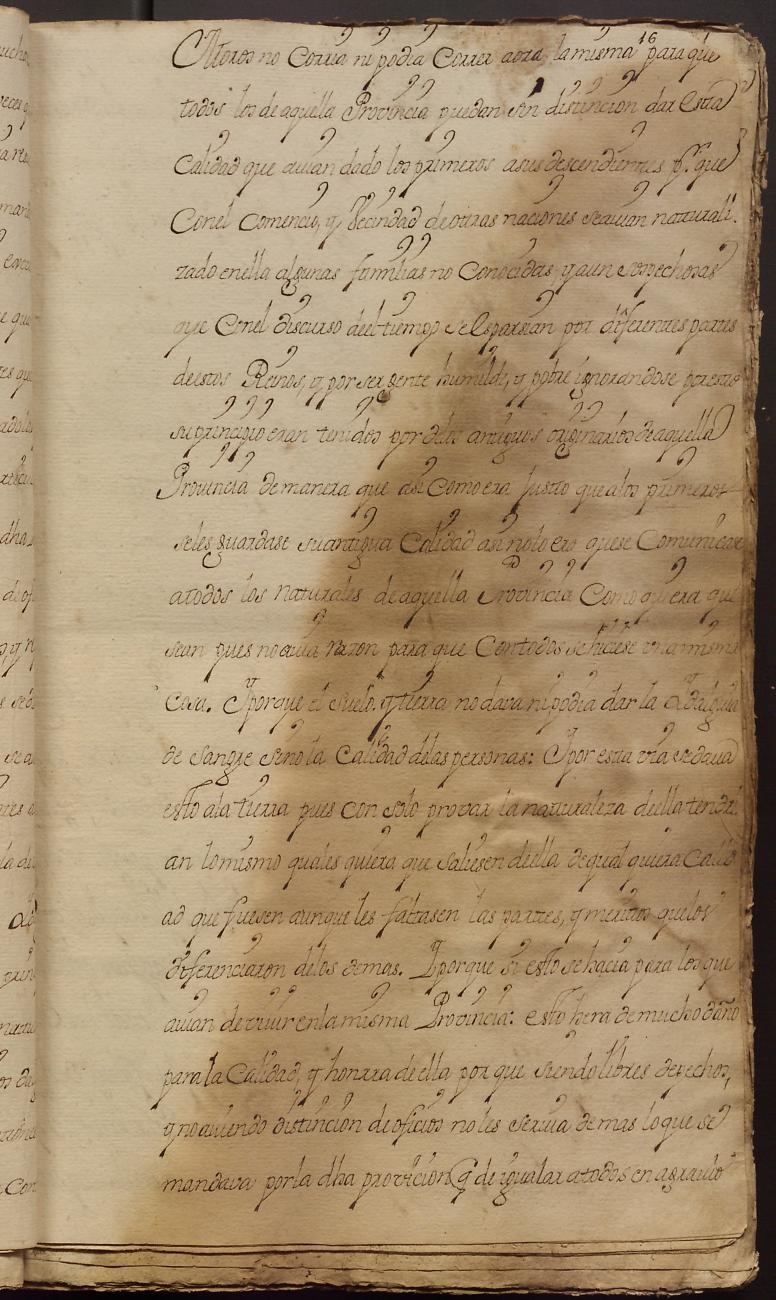 Moros no Corria ni podia Correr aora, la misma 16 para que
todos los de aquella Provincia puedan sin distincion dar Esta
Calidad que auian dado los primeros a sus descendientes pr. que
Con el Comercio, y Vecindad de otras naciones se auian naturali-
zado en ella algunas familias no Conocidas, y aun sospechosas
que Con el discurso del tiempo se Esparzian por diferentes partes
de estos Reinos, y por ser gente humilde, y pobre ignorandose
su principio eran tenidos por de los antiguos originarios de aquella
Provincia de manera que asi Como era Justo que a los primeros
se les guardase su antigua Calidad asi no lo era que se Comunicase
a todos los naturales de aquella Provincia Como quiera que
sean pues no auia razon para que Con todos se hiciese una misma
Cosa. Y porque el suelo, y tierra no dava ni podia dar la
de sangre sino la Calidad de las personas: Y por esta via se daua
esto a la tierra pues con solo provar la naturaleza de ella tendri
an lo mismo quales quiera que saliesen de ella de qual quiera Calid
ad que fuesen aunque les faltasen las partes, y meritos que los
diferenciaron de los demas. Y porque si esto se hacia para los que
auian de vivir en la misma Provincia: esto hera de mucho daño
para la Calidad, y honrra de ella por que siendo libres de pechos,
y no auiendo distincion de oficios no les seruia de mas lo que se
mandava por la dha provicion q de igualar a todos en agrauio